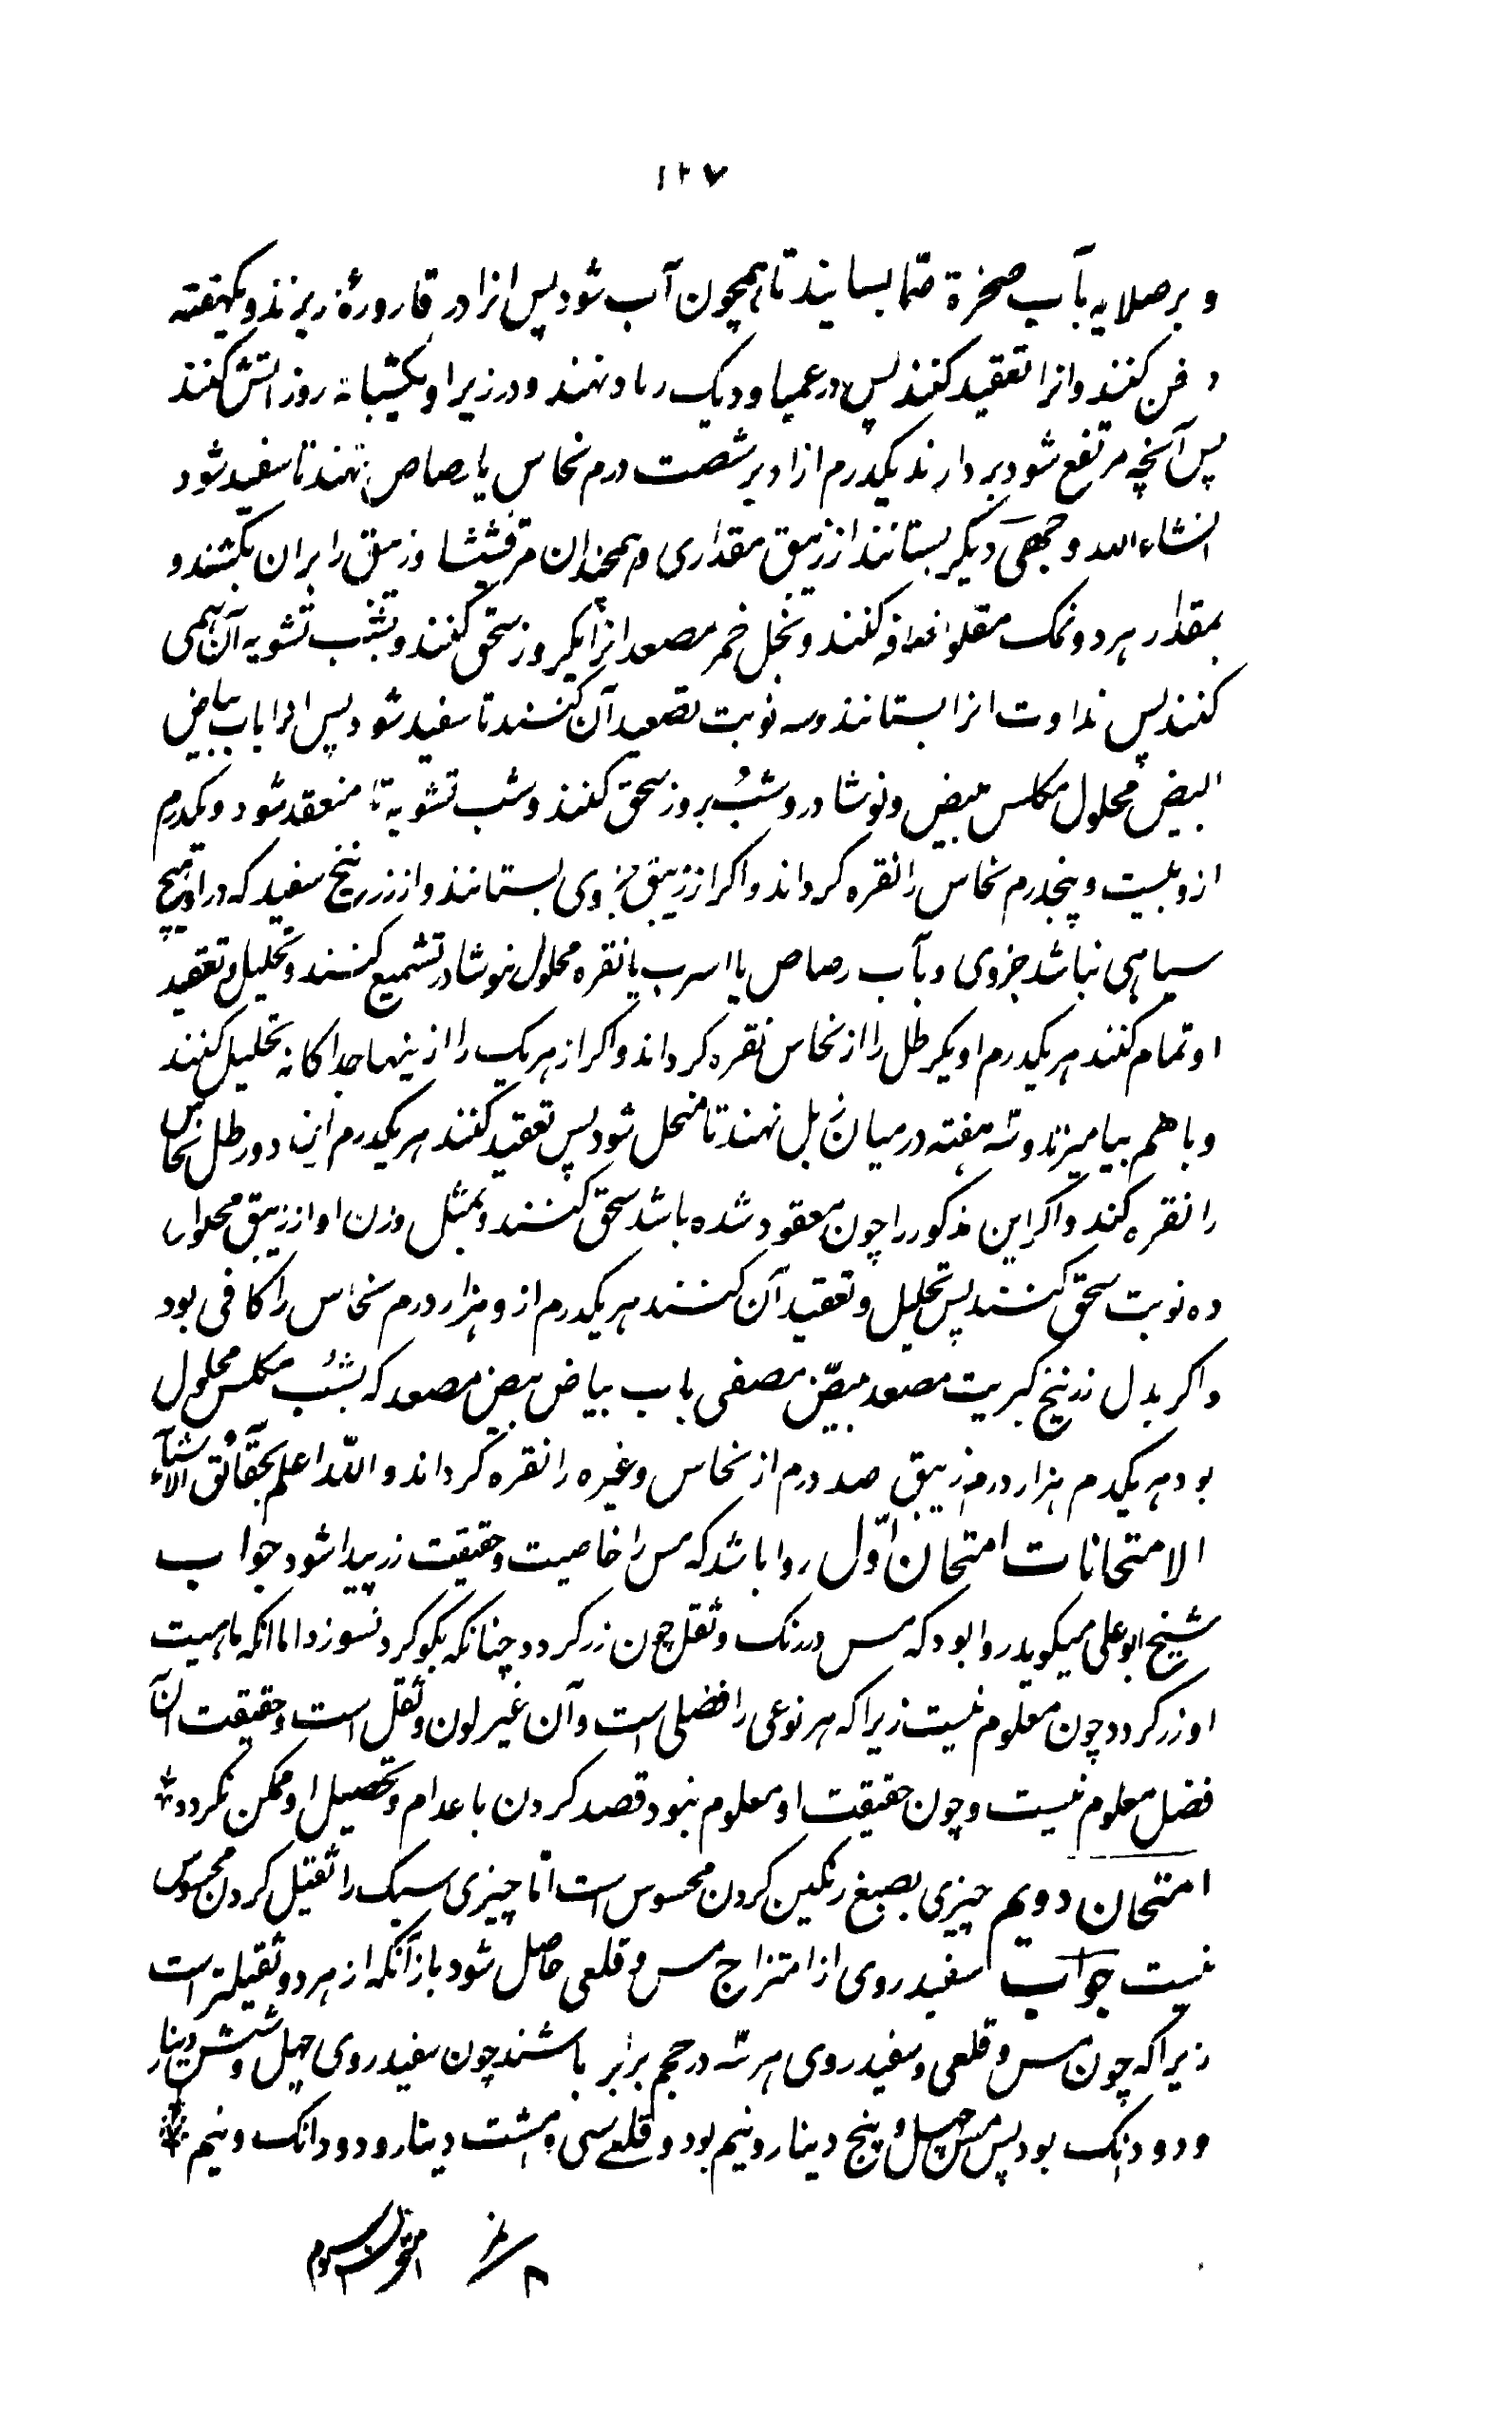 ۱۲۷
و بر صلایه بآب صخرة صما بسایند تا همچون آب شود پس انرا در قارورهٔ ریزند و یکهفته
دفن کنند وانرا تعقید کنند پس در عمیا و دیک رماد نهند و در زیر او یکشبانه روز اتش کنند
پس آنچه مرتفع شود بردارند یکدرم ازاو بر شصت درم نحاس یا رصاص نهند تا سفید شود
انشاءالله وجهی دیکر بستانند از زیبق مقداری و همچندان مرقشیثا و زیبق را بران بکشند و
بمقدار هر دو نمک مقلو اضافه کنند و بخل خمر مصعد انرا یکروز سحق کنند و بشب تشویه آن همی
کنند پس نداوت انرا بستانند و سه نوبت تصعید آن کنند تا سفید شود پس انرا باب بیاض
البیض محلول مکلس مبیض و نوشادر و شب بروز سحق کنند و شب تشویه تا منعقد شود و یکدرم
ازو بیست و پنجدرم نحاس را نقره کرداند و اکر از زیبق جزوی بستانند و از زرنیخ سفید که در او هیچ
سیاهی نباشد جزوی و بآب رصاص یا اسرب یا نقره محلول بنوشادر تشمیع کنند و تحلیل و تعقید
او تمام کنند هر یکدرم او یکرطل را از نحاس نقره کرداند و اکر از هر یک را ازینها جداکانه تحلیل کنند
و با هم بیامیزند و سه هفته در میان زبل نهند تا منحل شود پس تعقید کنند هر یکدرم این دو رطل نحاس
را نقره کند و اکر این مذکور را چون معقود شده باشد سحق کنند و بمثل وزن او از زیبق محلول
ده نوبت سحق کنند پس تحلیل و تعقید آن کنند هر یکدرم ازو هزار درم نحاس را کافی بود
و اکر بدل زرنیخ کبریت مصعد مبیض مصفی بآب بیاض بیض مصعد که بشب مکلس محلول
بود هر یکدرم هزار درم زیبق صد درم از نحاس و غیره را نقره کرداند و الله اعلم بحقائق الاشیآء
الامتحانات امتحان اوّل روا باشد که مس را خاصیت و حقیقت زر پیدا شود جواب
شیخ ابو علی میکوید روا بود که مس در رنک و ثقل چون زر کردد چنانکه بکوکرد نسوزد اما انکه ماهیت
او زر کردد چون معلوم نیست زیرا که هر نوعی را فضلی است و آن غیر لون و ثقل است و حقیقت آن
فضل معلوم نیست و چون حقیقت او معلوم نبود قصد کردن باعدام و تحصیل او ممکن نکردد
امتحان دویم چیزی بصبغ رنکین کردن محسوس است امّا چیزی سبک را ثقیل کردن محسوس
نیست جواب سفیدروی از امتزاج مس و قلعی حاصل شود باز آنکه از هر دو ثقیلتر است
زیرا که چون مس و قلعی و سفیدروی هر سه در حجم برابر باشند چون سفیدروی چهل و شش دینار
و دو دانک بود پس مس چهل و پنج دینار و نیم بود و قلعی سی و هشت دینار و دو دانک و نیم